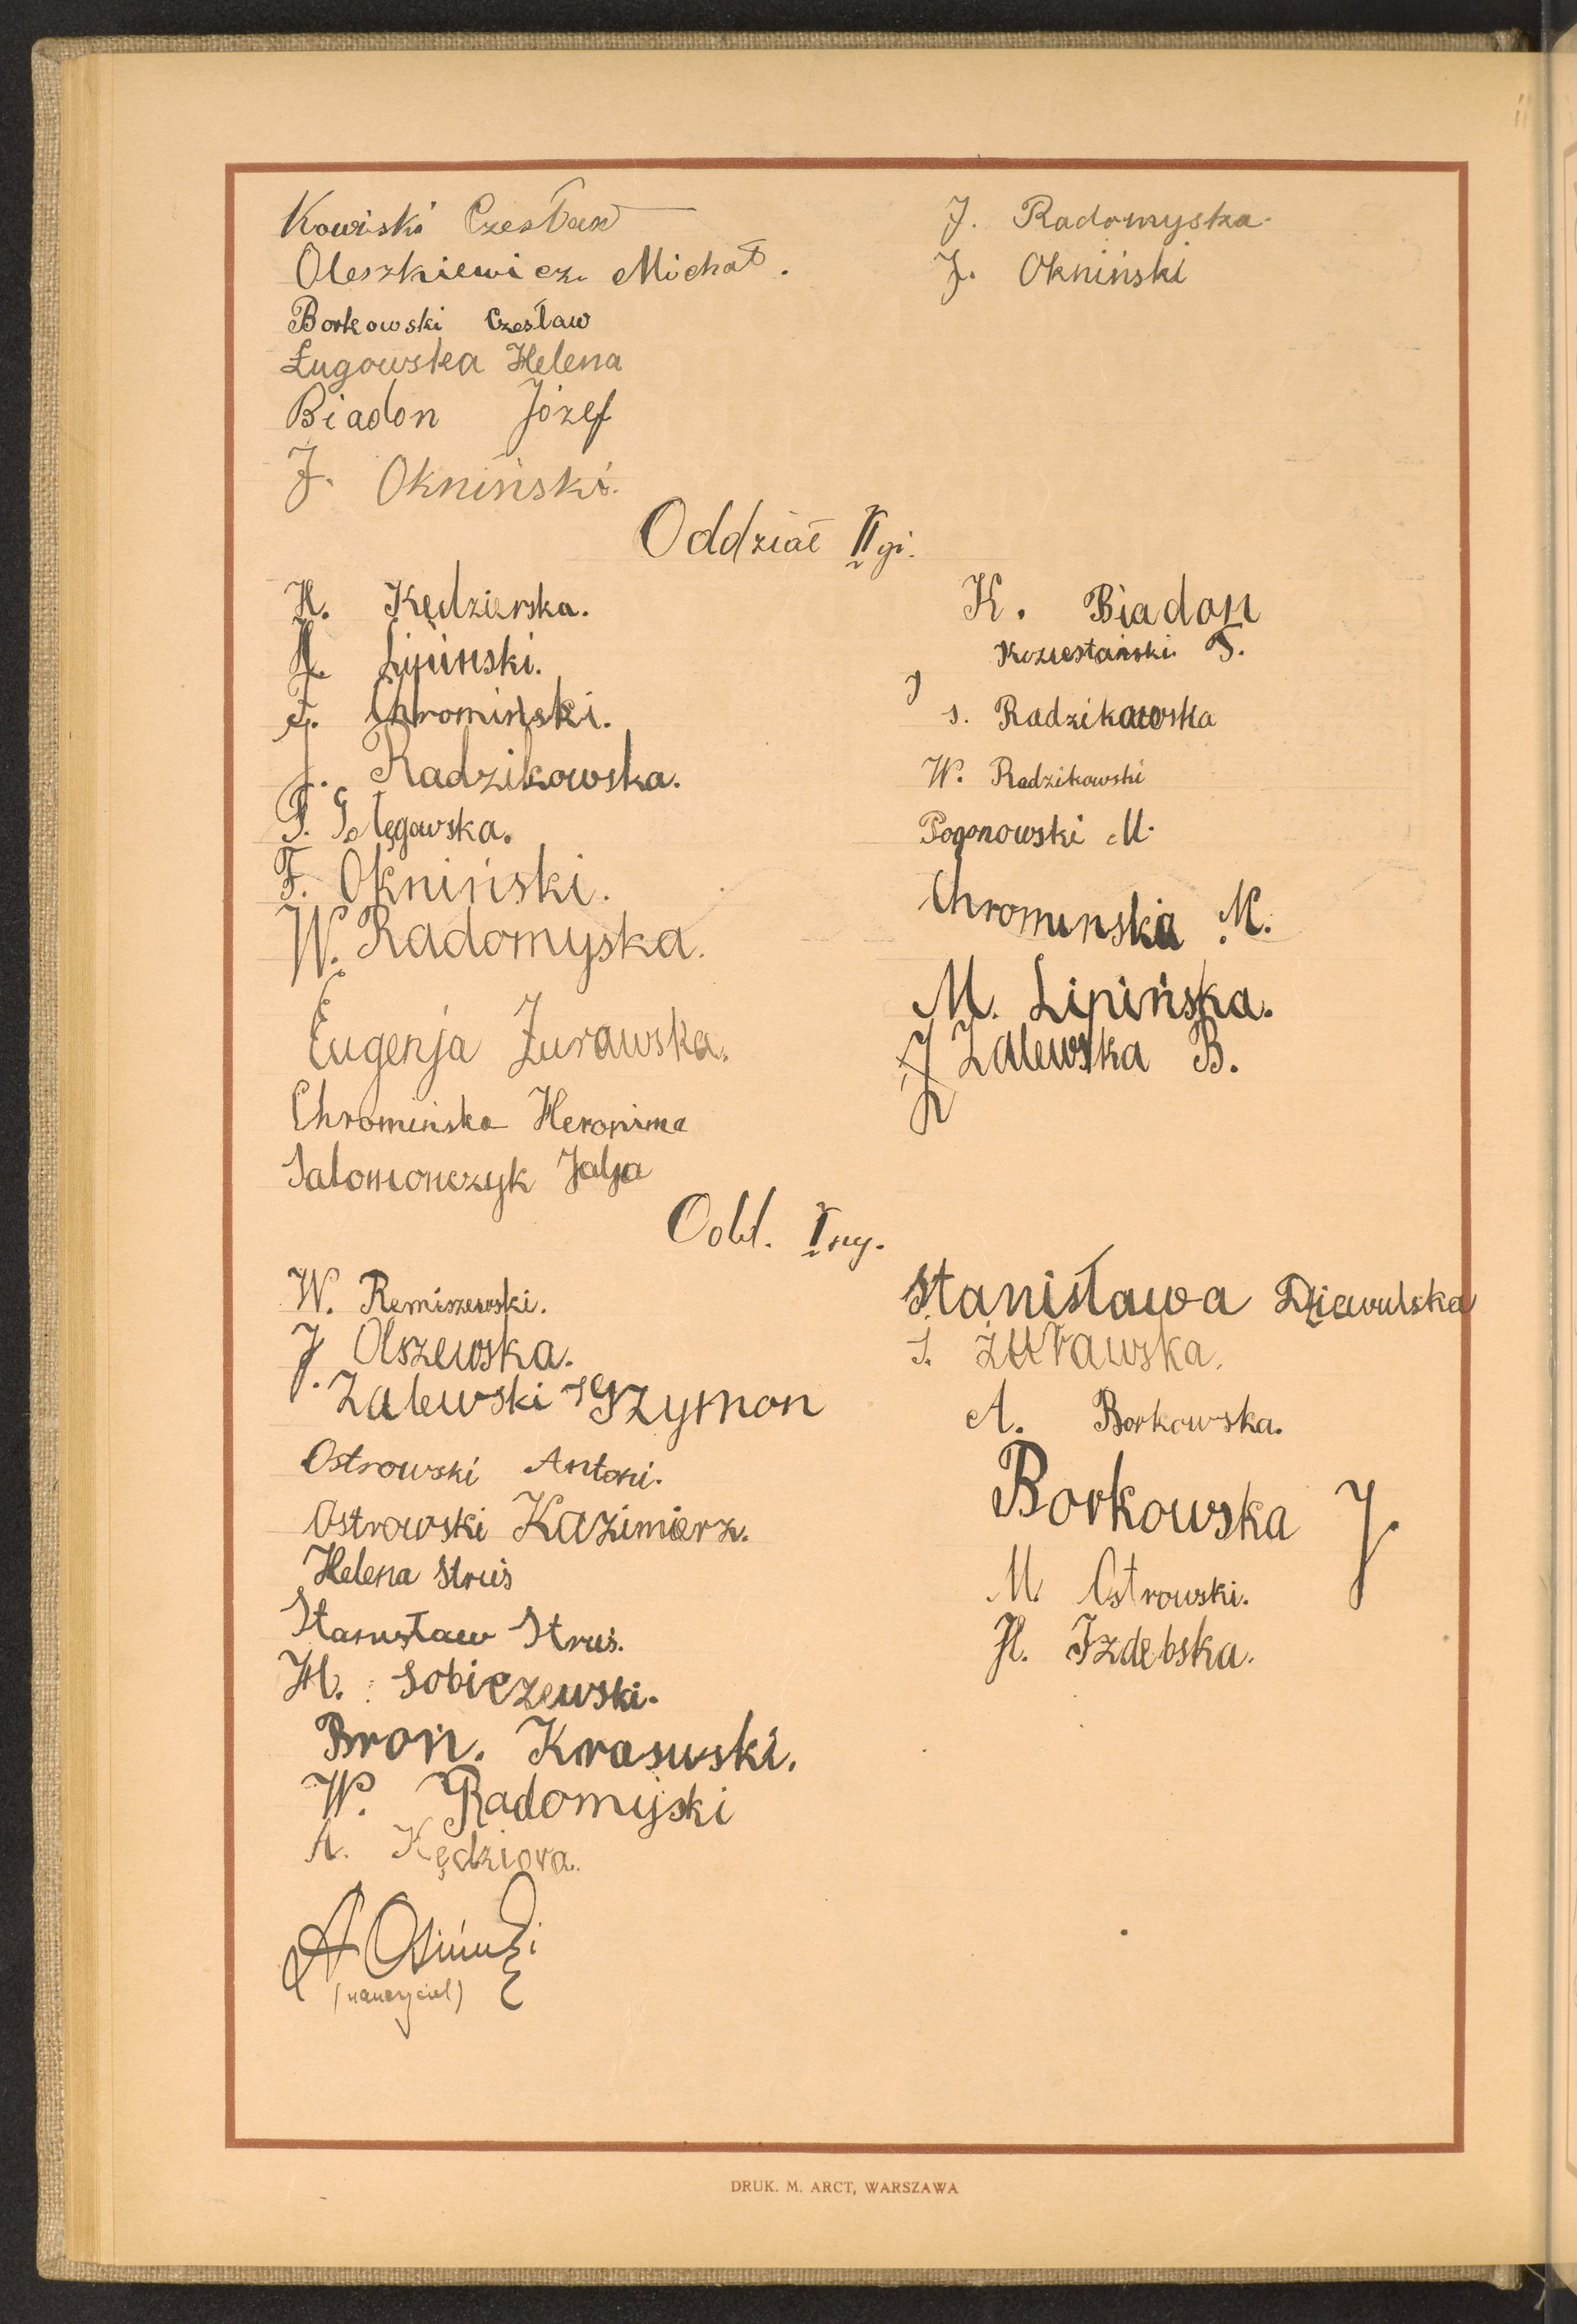 Kowiski Czesław
Oleszkiewicz Michał.
Borkowski Czesław
Ługowska Helena
Biadoń Józef
J. Okniński.
J. Radomyska.
J. Okniński
Oddział II gi.
H. Kędzierska.
H. Lipiński.
F. Chromiński.
J. Radzikowska.
F. Gołęgowska.
F. Okniński.
W. Radomyska.
Eugenja Żurawska.
Chromińska Heronima
Salomonczyk Jalja
K. Biadoń
T.
S. Radzikowska
W. Radzikowski
Pogonowski M.
Chromińska M.
M. Lipińska.
Zalewska B.
Odd. I ny.
W. Remiszewski.
J. Olszewska.
Zalewski Szymon
Ostrowski Antoni.
Ostrowski Kazimierz.
Helena Struś
Stanisław Struś.
H. Sobiczewski.
Bron. Krasuski.
W. Radomyski
A. Kędziora.
A Osiński
(nauczyciel)
Stanisława Dziewulska
S. Żurawska.
A. Borkowska.
Borkowska J.
M. Ostrowski.
H. Izdebska.
DRUK. M. ARCT, WARSZAWA